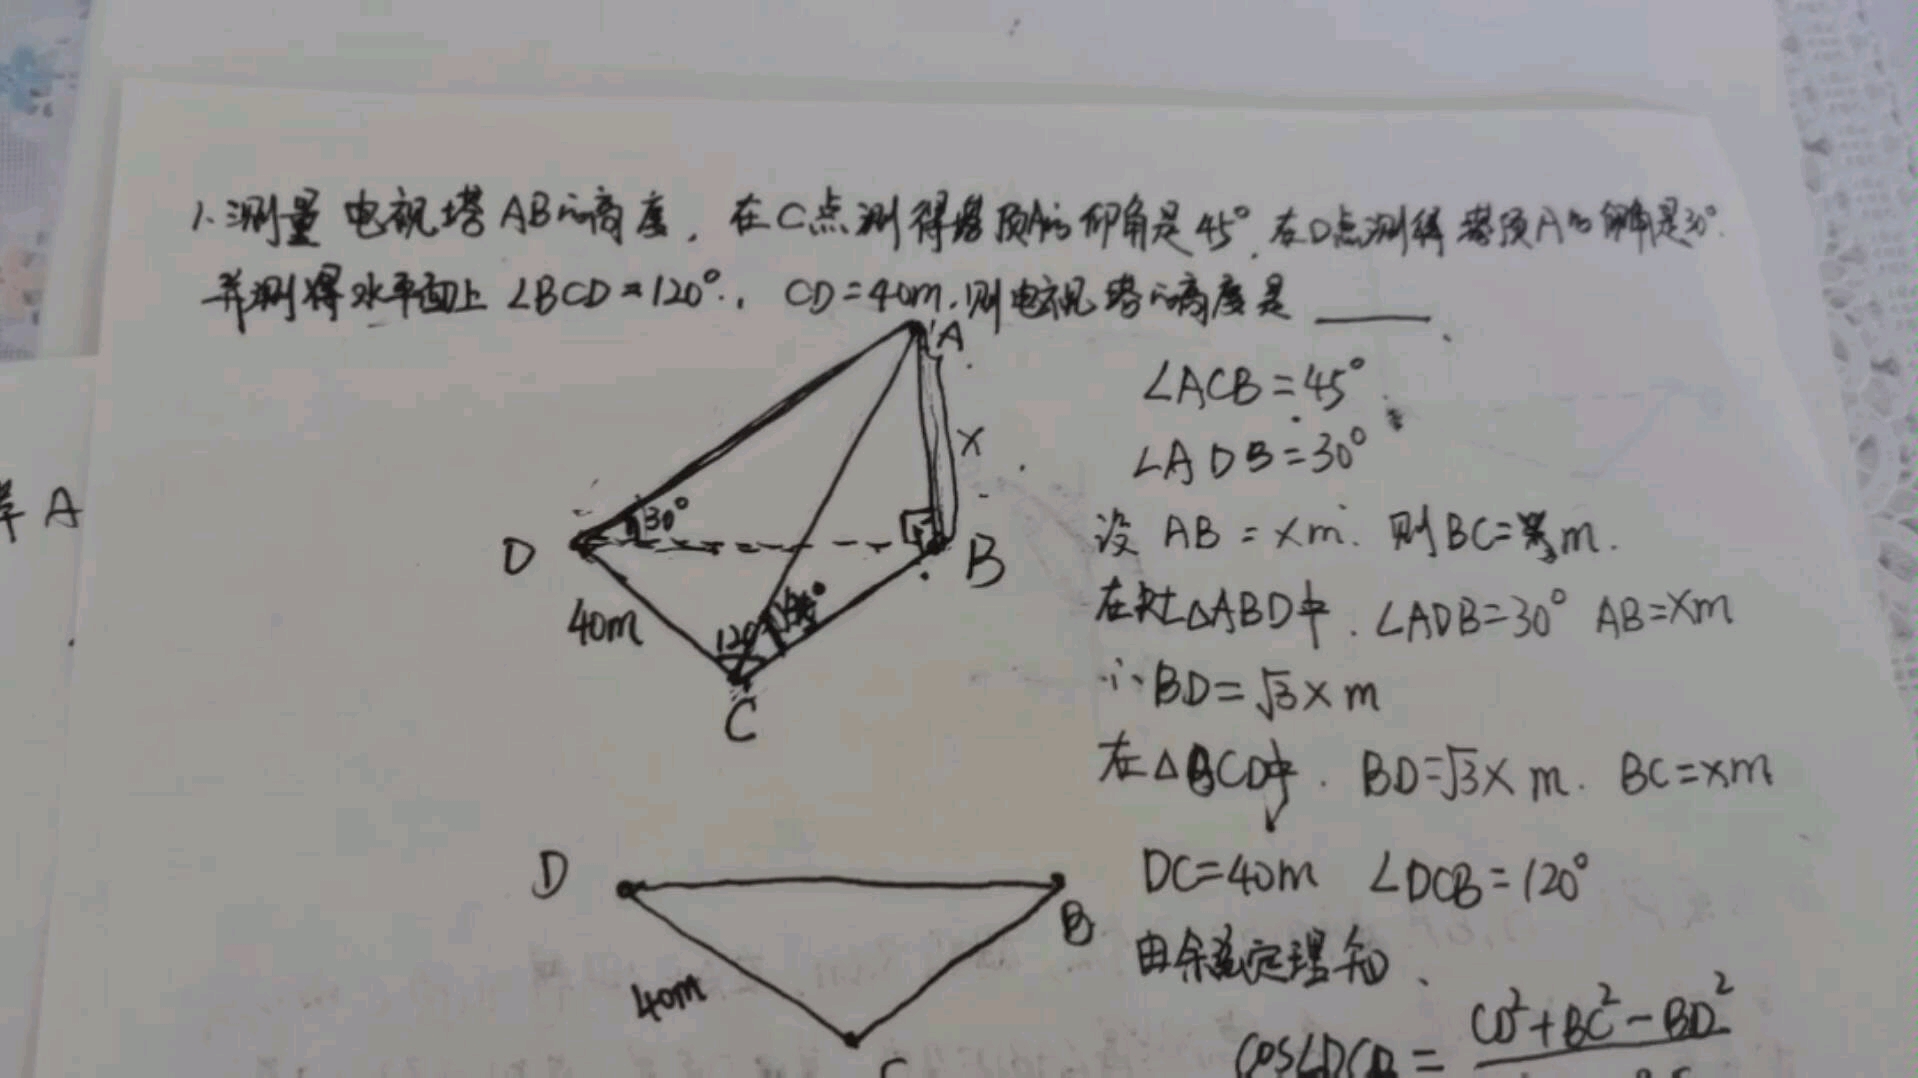 1. 测量电视塔AB的高度，在C点测得塔顶A的仰角是45°，在D点测得塔顶A的仰角是30°.
并测得水平面上∠BCD=120°, CD=40m. 则电视塔的高度是____.
A
∠ACB=45°
X
∠ADB=30°
A
30°
设AB=xm. 则BC=xm.
D
B
120°
45°
40m
在Rt△ABD中. ∠ADB=30° AB=xm
∴BD=√3xm
C
在△BCD中. BD=√3xm. BC=xm
D
DC=40m ∠DCB=120°
B
由余弦定理知
40m
C
cos∠DCB=
CD²+BC²-BD²